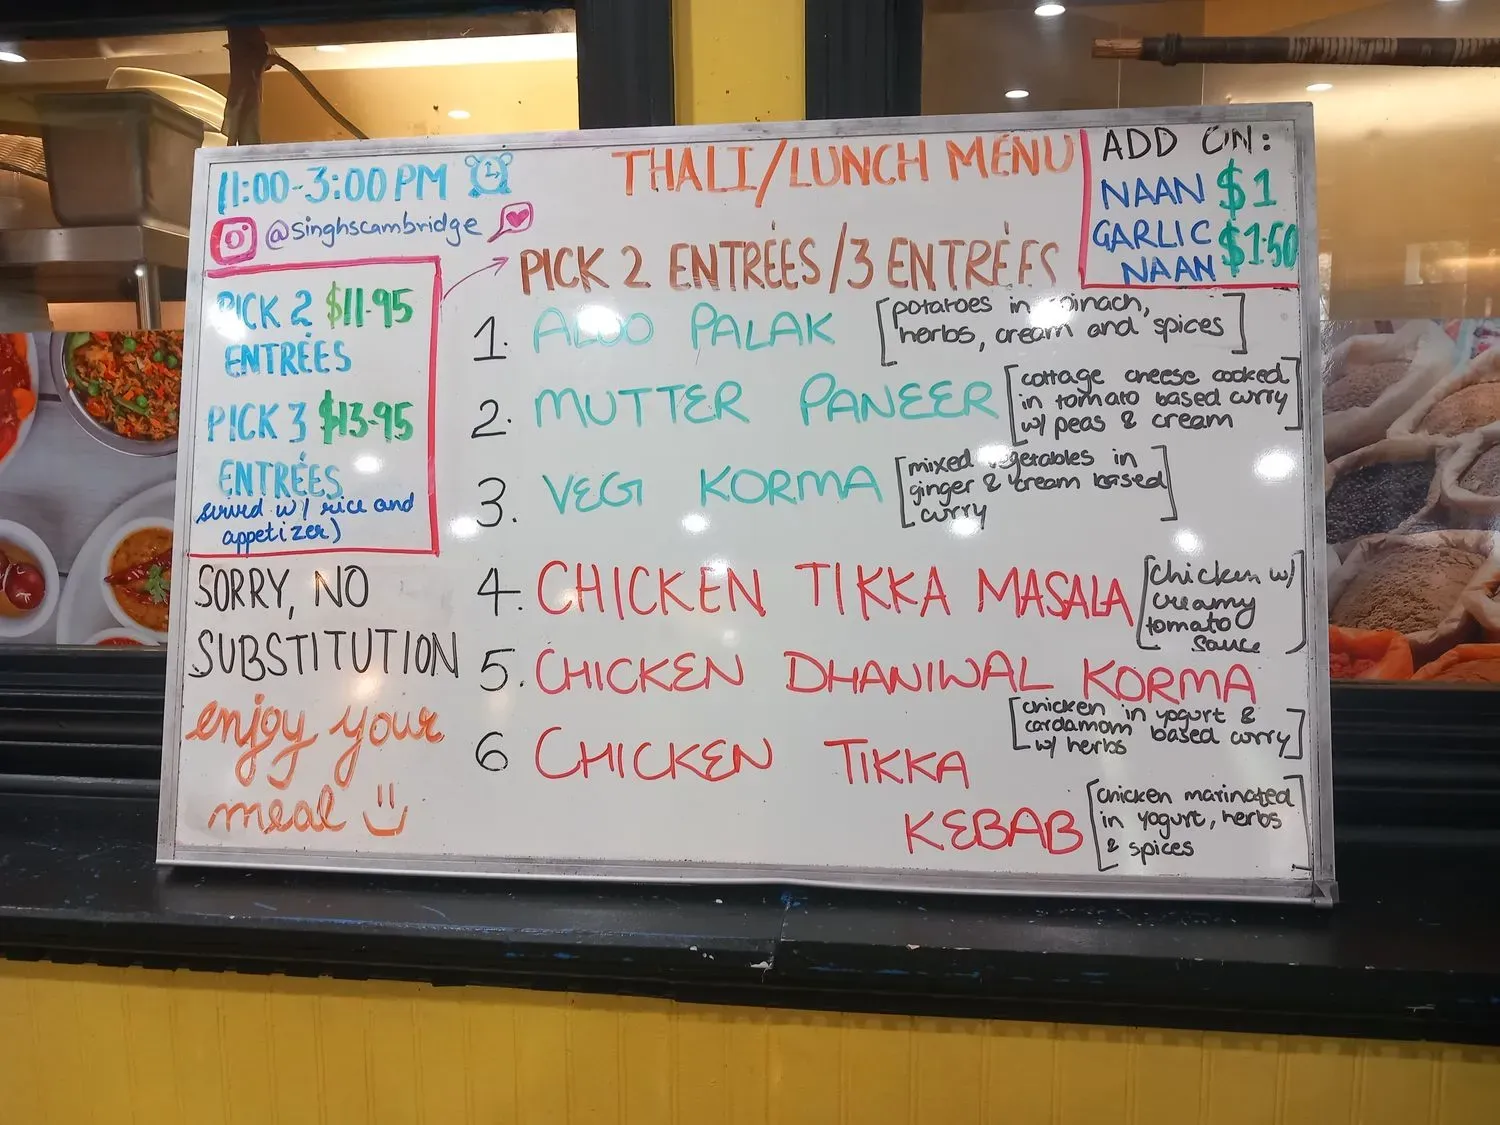 11:00-3:00 PM
@singhscambridge
THALI/LUNCH MENU
ADD ON:
NAAN $1
GARLIC NAAN $1.50
PICK 2 $11.95
ENTRÉES
PICK 3 $13.95
ENTRÉES
served w/ rice and
appetizer)
SORRY, NO
SUBSTITUTION
enjoy your
meal
PICK 2 ENTRÉES/3 ENTRÉES
1. ALOO PALAK [potatoes in spinach,
herbs, cream and spices]
2. MUTTER PANEER [cottage cheese cooked
in tomato based curry
w/ peas & cream]
3. VEGI KORMA [mixed vegetables in
ginger & cream based
curry]
4. CHICKEN TIKKA MASALA [chicken w/
creamy
tomato
sauce]
5. CHICKEN DHANIWAL KORMA
[chicken in yogurt &
cardamom based curry
w/ herbs]
6 CHICKEN TIKKA
KEBAB [chicken marinated
in yogurt, herbs
& spices]